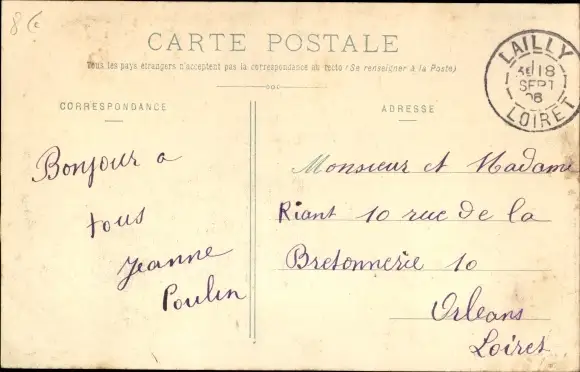 8 €
CARTE POSTALE
Tous les pays étrangers n'acceptent pas la correspondance au recto (Se renseigner à la Poste)
CORRESPONDANCE
ADRESSE
LAILLY
18
SEPT
06
LOIRET
Bonjour a
tous
Jeanne
Poulin
Monsieur et Madame
Riant 10 rue de la
Bretonnerie 10
Orleans
Loiret